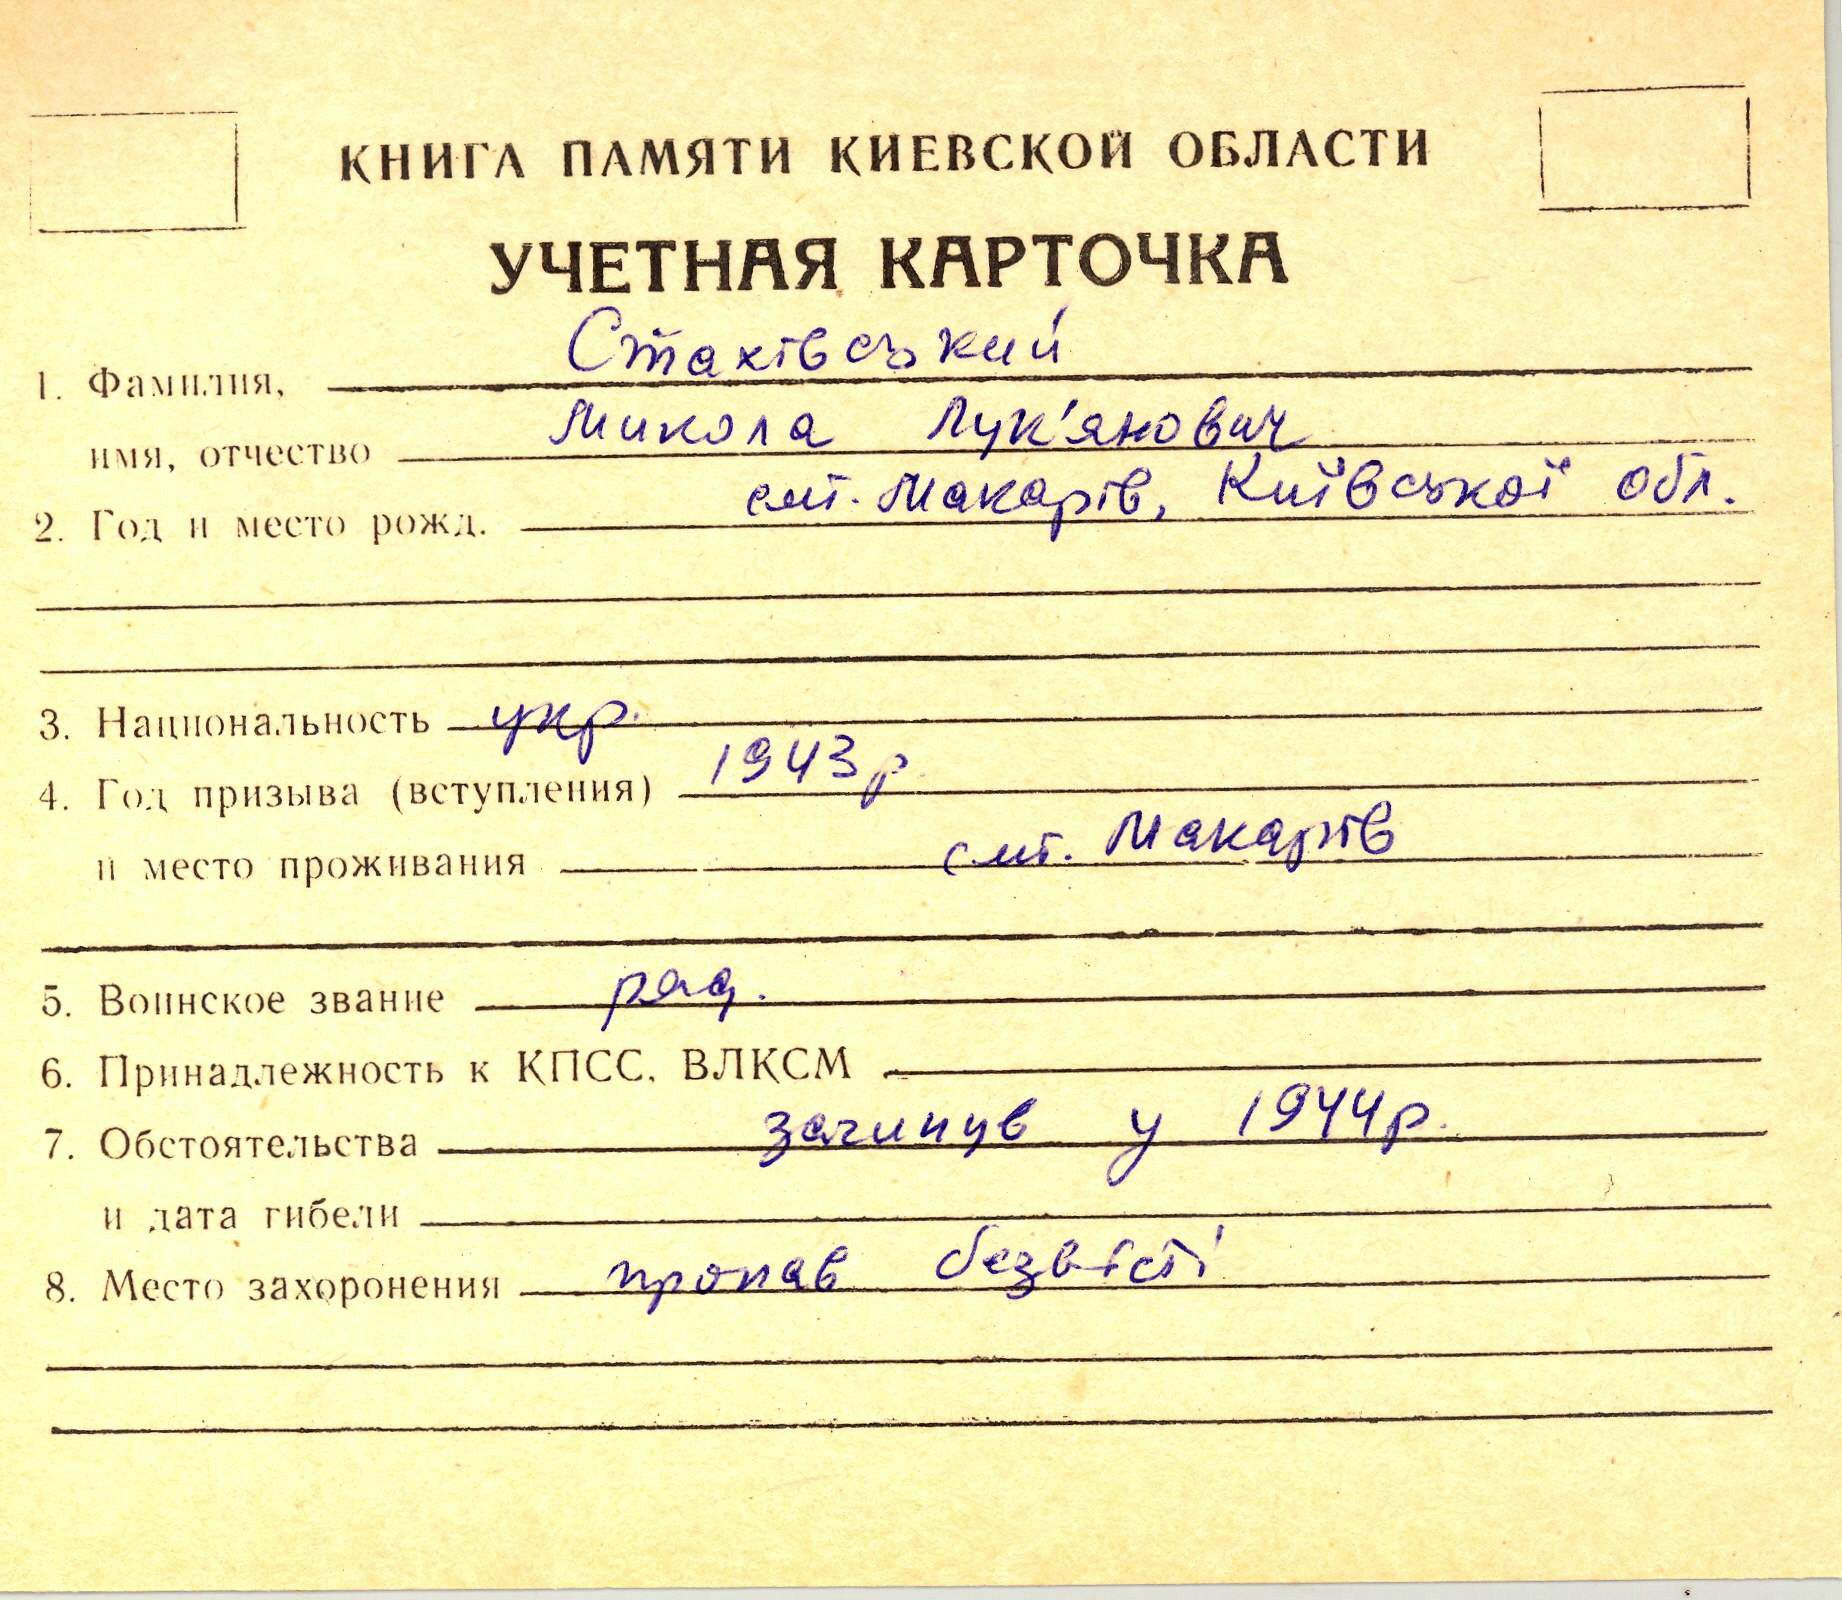 КНИГА ПАМЯТИ КИЕВСКОЙ ОБЛАСТИ
УЧЕТНАЯ КАРТОЧКА
1. Фамилия, Стахівський
имя, отчество Микола Лук'янович
2. Год и место рожд. смт. Макарів, Київської обл.
3. Национальность укр.
4. Год призыва (вступления) 1943 р.
и место проживания смт. Макарів
5. Воинское звание ряд.
6. Принадлежность к КПСС, ВЛКСМ
7. Обстоятельства загинув у 1944 р.
и дата гибели
8. Место захоронения пропав безвісті